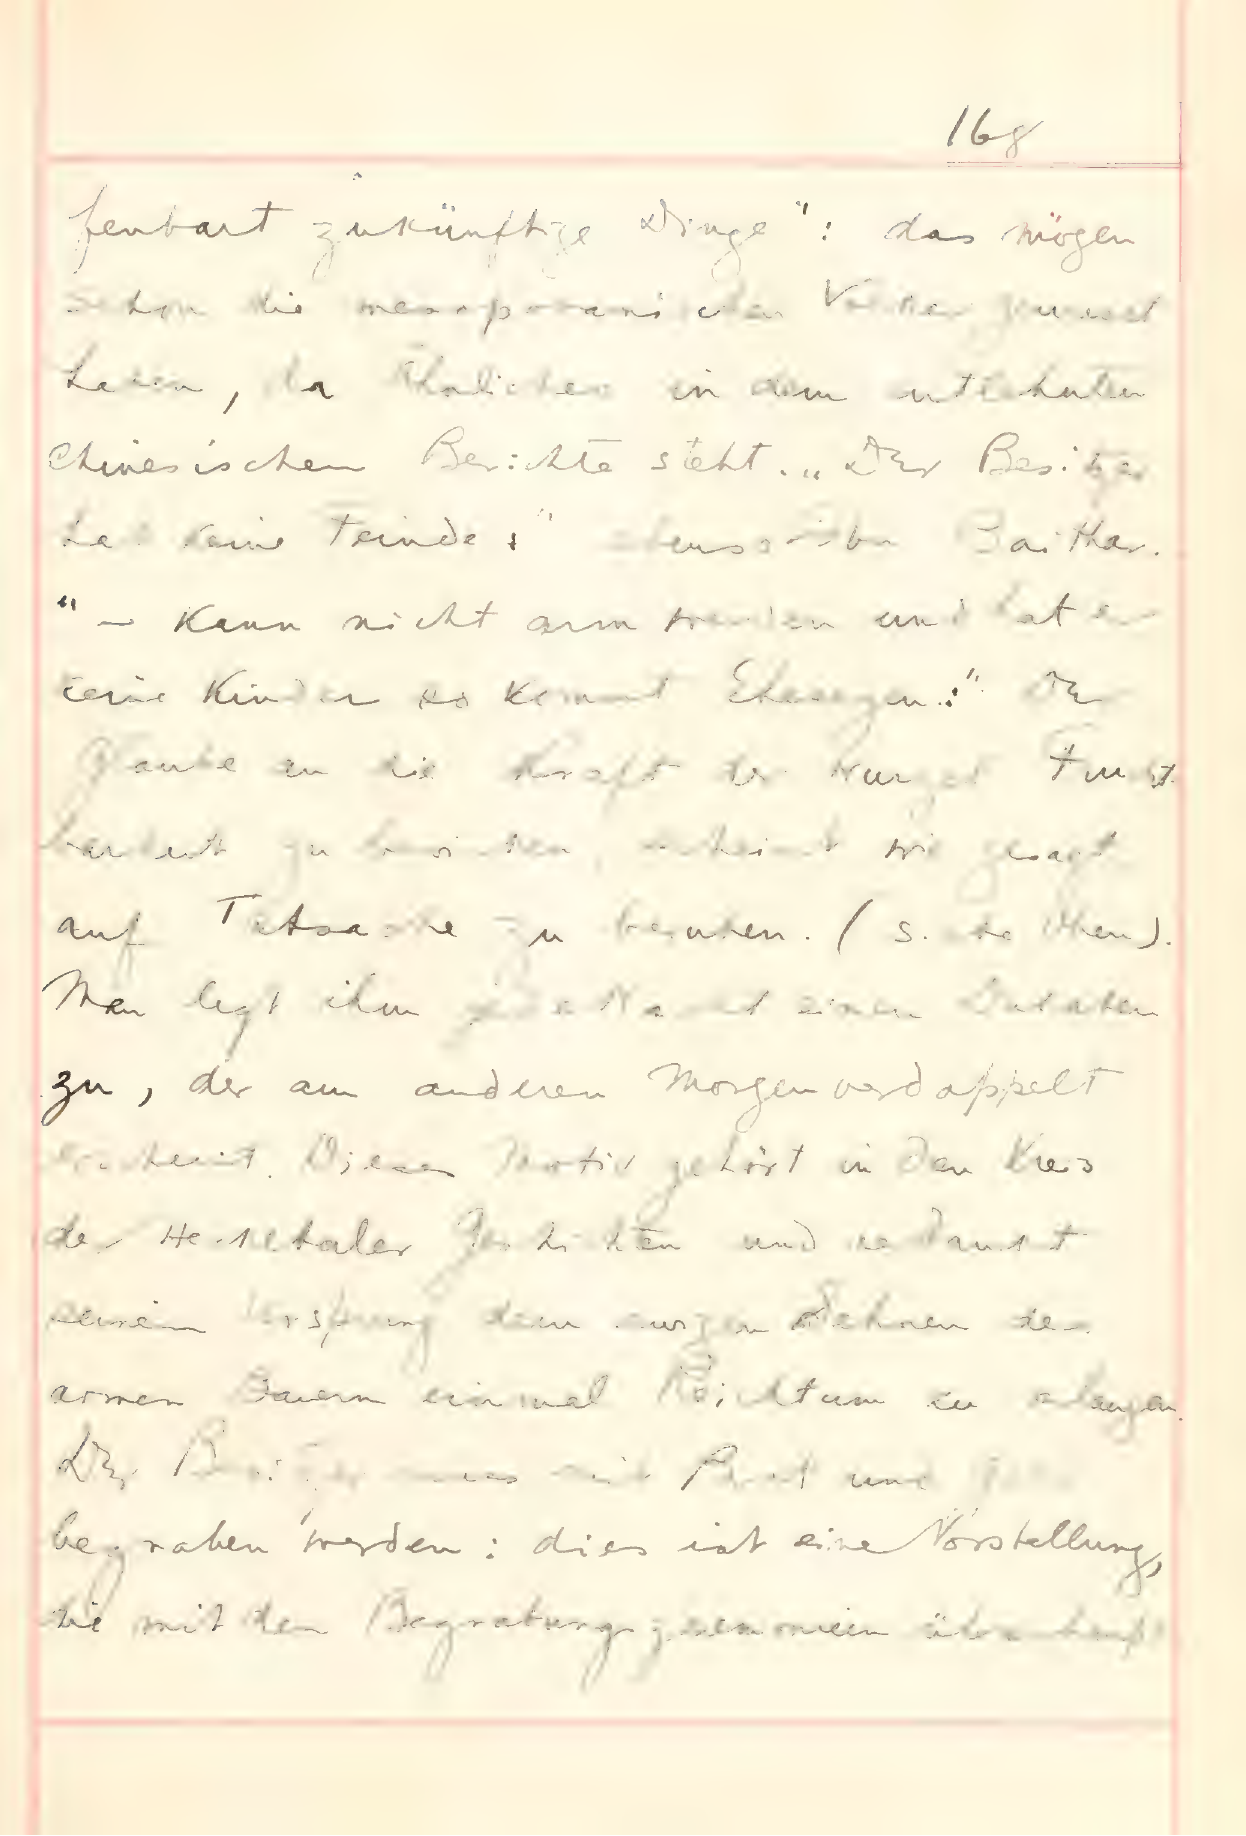 168
fenbart zukünftige Dinge": das mögen
schon die mesopotamischen Völker gewusst
haben, da Ähnliches in dem entlehnten
Chinesischen Berichte steht. „Der Besitzer
hat keine Feinde:" ebenso Ibn Baithar.
"– kann nicht arm werden und hat er
keine Kinder so kommt Ehesegen:" Der
Glaube an die Kraft der Wurzel Frucht-
barkeit zu bewirken, scheint wie gesagt
auf Tatsache zu beruhen. (s. oben).
Man legt ihm jede Nacht einen Dukaten
zu, der am anderen Morgen verdoppelt
erscheint. Dieses Motiv gehört in den Kreis
der Hecketaler Geschichten und verdankt
seinen Ursprung dem ewigen Sehnen des
armen Bauern einmal Reichtum zu erlangen.
Der Besitzer muss mit Brot und
begraben werden: dies ist eine Vorstellung,
die mit den Begrabungszeremonien überhaupt